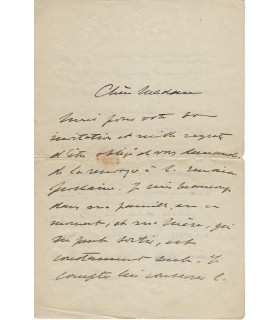 Chère Madame
Merci pour votre
invitation et mille regrets
d'être obligé de vous demander
de la remettre à la semaine
prochaine. Je suis beaucoup
dans ma famille, en ce
moment, et ma mère, qui
ne peut sortir, est
constamment seule. Je
compte